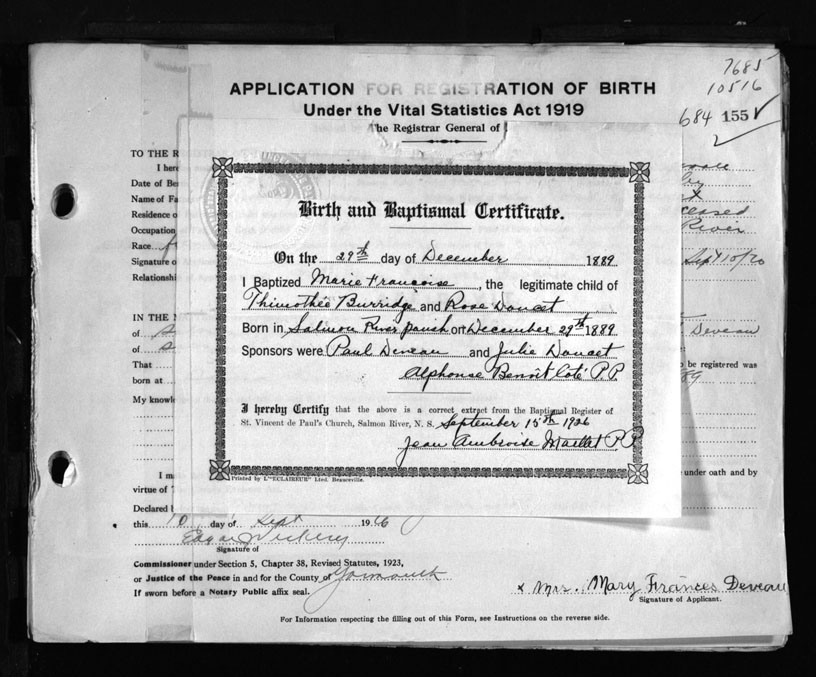 7685
10516
684 155
2
APPLICATION FOR REGISTRATION OF BIRTH
Under the Vital Statistics Act 1919
the Registrar General of
TO THE R
I here
Date of Be
Name of Fa
Residence o
Occupation
Race
Signature o
Relationshi
eceased
River
Sept 10/20
IN THE M
of
of
That
born at
My knowle
Deveau
to be registered was
89
Birth and Baptismal Certificate.
On the 29th day of December 1889
I Baptized Marie Francoise, the legitimate child of
Thimothée Burridge and Rose Doucet
Born in Salmon River parish on December 29th 1889
Sponsors were Paul Deveau and Julie Doucet
Alphonse Benoît Coté P.P.
I hereby Certify that the above is a correct extract from the Baptismal Register of
St. Vincent de Paul's Church, Salmon River, N. S. September 15th 1926
Jean Ambroise Maillet P.P.
Printed by L'"ECLAIREUR" Ltd. Beauceville.
I ma
under oath and by
virtue of
Declared b
this 10 day of Sept 1926
Signature of
Commissioner under Section 5, Chapter 38, Revised Statutes, 1923,
or Justice of the Peace in and for the County of Yarmouth
If sworn before a Notary Public affix seal.
x Mrs. Mary Frances Deveau
Signature of Applicant.
For Information respecting the filling out of this Form, see Instructions on the reverse side.